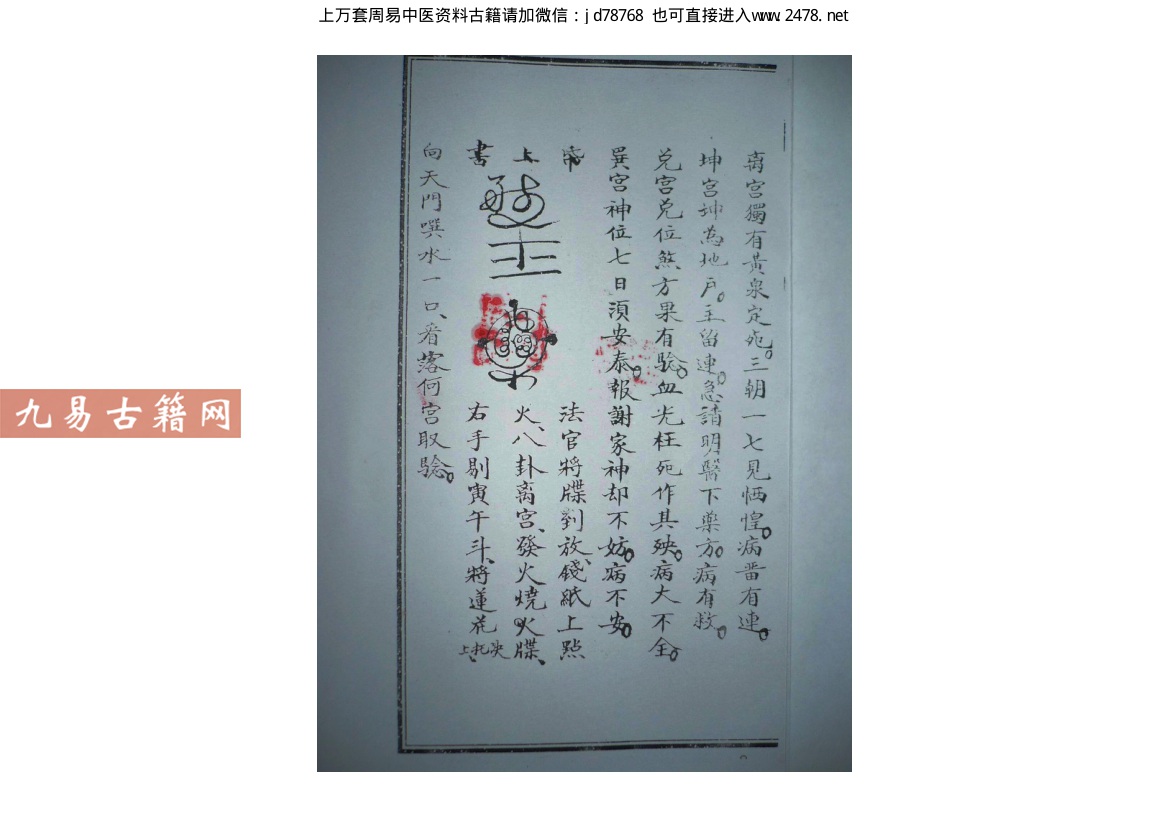 上万套周易中医资料古籍请加微信：jd78768 也可直接进入www.2478.net
離宮獨有黃泉定死。三朝一七見恓惶。病畨有連。
坤宮坤為地戶。主留連。急請明醫下藥方。病有救。
兌宮兌位煞方果有驗。血光枉死作其殃。病大不全。
巽宮神位七日須安泰。報謝家神却不妨。病不安。
上
書
法官將牒劄放、錢紙上點
火、八卦离宮、發火燒火牒、
右手剔寅午斗、將蓮花
向天門噀水一口、看落何宮取驗。
九易古籍网